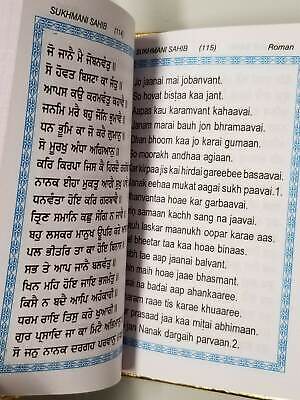 SUKHMANI SAHIB (114)
ਸੋ ਜਾਨੈ ਮੈ ਜੋਬਨਵੰਤੁ ॥
ਸੋ ਹੋਵਤ ਬਿਸਟਾ ਕਾ ਜੰਤੁ ॥
ਆਪਸ ਕਉ ਕਰਮਵੰਤੁ ਕਹਾਵੈ ॥
ਜਨਮਿ ਮਰੈ ਬਹੁ ਜੋਨਿ ਭ੍ਰਮਾਵੈ ॥
ਧਨ ਭੂਮਿ ਕਾ ਜੋ ਕਰੈ ਗੁਮਾਨੁ ॥
ਸੋ ਮੂਰਖੁ ਅੰਧਾ ਅਗਿਆਨੁ ॥
ਕਰਿ ਕਿਰਪਾ ਜਿਸ ਕੈ ਹਿਰਦੈ
ਨਾਨਕ ਈਹਾ ਮੁਕਤੁ ਆਗੈ
ਧਨਵੰਤਾ ਹੋਇ ਕਰਿ ਗਰਬਾਵੈ ॥
ਤ੍ਰਿਣ ਸਮਾਨਿ ਕਛੁ ਸੰਗਿ ਨ ਜਾਵੈ ॥
ਬਹੁ ਲਸਕਰ ਮਾਨੁਖ ਊਪਰਿ ਕਰੇ ਆਸ ॥
ਪਲ ਭੀਤਰਿ ਤਾ ਕਾ ਹੋਇ ਬਿਨਾਸ ॥
ਸਭ ਤੇ ਆਪ ਜਾਨੈ ਬਲਵੰਤੁ ॥
ਖਿਨ ਮਹਿ ਹੋਇ ਜਾਇ ਭਸਮੰਤੁ ॥
ਕਿਸੈ ਨ ਬਦੈ ਆਪਿ ਅਹੰਕਾਰੀ ॥
ਧਰਮ ਰਾਇ ਤਿਸੁ ਕਰੇ ਖੁਆਰੀ ॥
ਗੁਰ ਪ੍ਰਸਾਦਿ ਜਾ ਕਾ ਮਿਟੈ ਅਭਿਮਾਨੁ ॥
ਸੋ ਜਨੁ ਨਾਨਕ ਦਰਗਹ ਪਰਵਾਨੁ
SUKHMANI SAHIB (115) Roman
Jo jaanai mai jobanvant.
So hovat bistaa kaa jant.
Aapas kau karamvant kahaavai.
Janam marai bauh jon bharmaavai.
Dhan bhoom kaa jo karai gumaan.
So moorakh andhaa agiaan.
kirpaa jis kai hirdai gareebee basaavai.
eehaa mukat aagai sukh paavai.1.
hanvantaa hoae kar garbaavai.
samaan kachh sang na jaavai.
laskar maanukh oopar karae aas.
bheetar taa kaa hoae binaas.
tae aap jaanai balvant.
mah hoae jaae bhasmant.
na badai aap ahankaaree.
raae tis karae khuaaree.
prasaad jaa kaa mitai abhimaan.
jan Nanak dargaih parvaan.2.